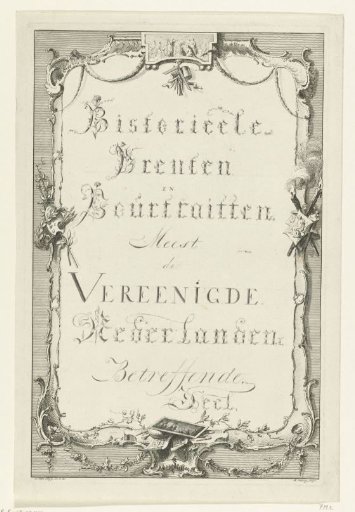 Historieele
Prenten
EN
Pourtraitten.
Meest
de
VEREENIGDE
Nederlanden.
Betreffende.
Deel.